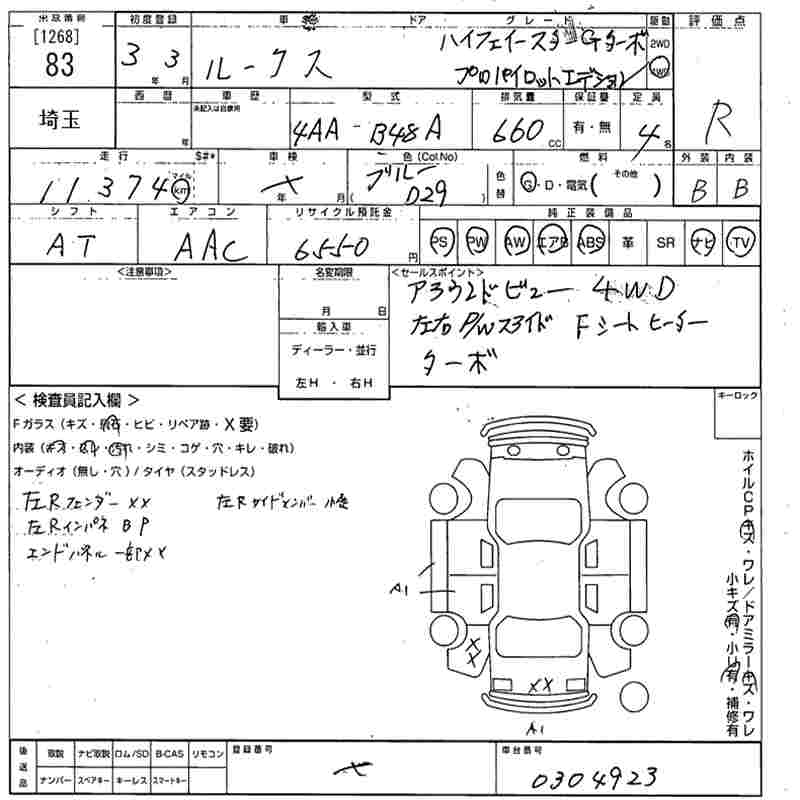 出品番号 初度登録 車名 ドア グレード 駆動 評価点
[1268]
83
3 3 年 月
ルークス
ハイウェイスターGターボ
プロパイロットエディション
2WD
4WD
R
埼玉
西暦 車歴 型式 排気量 保証書 定員
未記入は自家用
年
4AA-B48A
660 CC
有・無
4 名
走行 S#* 車検 色(ColNo) 色替 燃料 外装 内装
11374 マイル km
× 年 月
ブルー
( D29 )
G・D・電気( その他 )
B B
シフト エアコン リサイクル預託金 純正装備品
AT AAC 6550 円
PS PW AW エアB ABS 革 SR ナビ TV
<注意事項> 名変期限 <セールスポイント>
月 日
輸入車
ディーラー・並行
左H ・ 右H
アラウンドビュー 4WD
左右P/Wスライド Fシートヒーター
ターボ
< 検査員記入欄 >
キーロック
Fガラス(キズ・飛石・ヒビ・リペア跡・X要)
内装(キズ・スレ・汚れ・シミ・コゲ・穴・キレ・破れ)
オーディオ(無し・穴)/タイヤ(スタッドレス)
左Rフェンダー XX 左Rサイドメンバー 小曲
左Rインパネ BP
エンドパネル 一部XX
A1
XX
XX
A1
ホイルCPキズ・ワレ/ドアミラーキズ・ワレ
小キズ有・小凹有・補修有
後送品
取説 ナビ取説 ロム/SD B-CAS リモコン
ナンバー スペアキー キーレス スマートキー
登録番号
×
車台番号
0304923